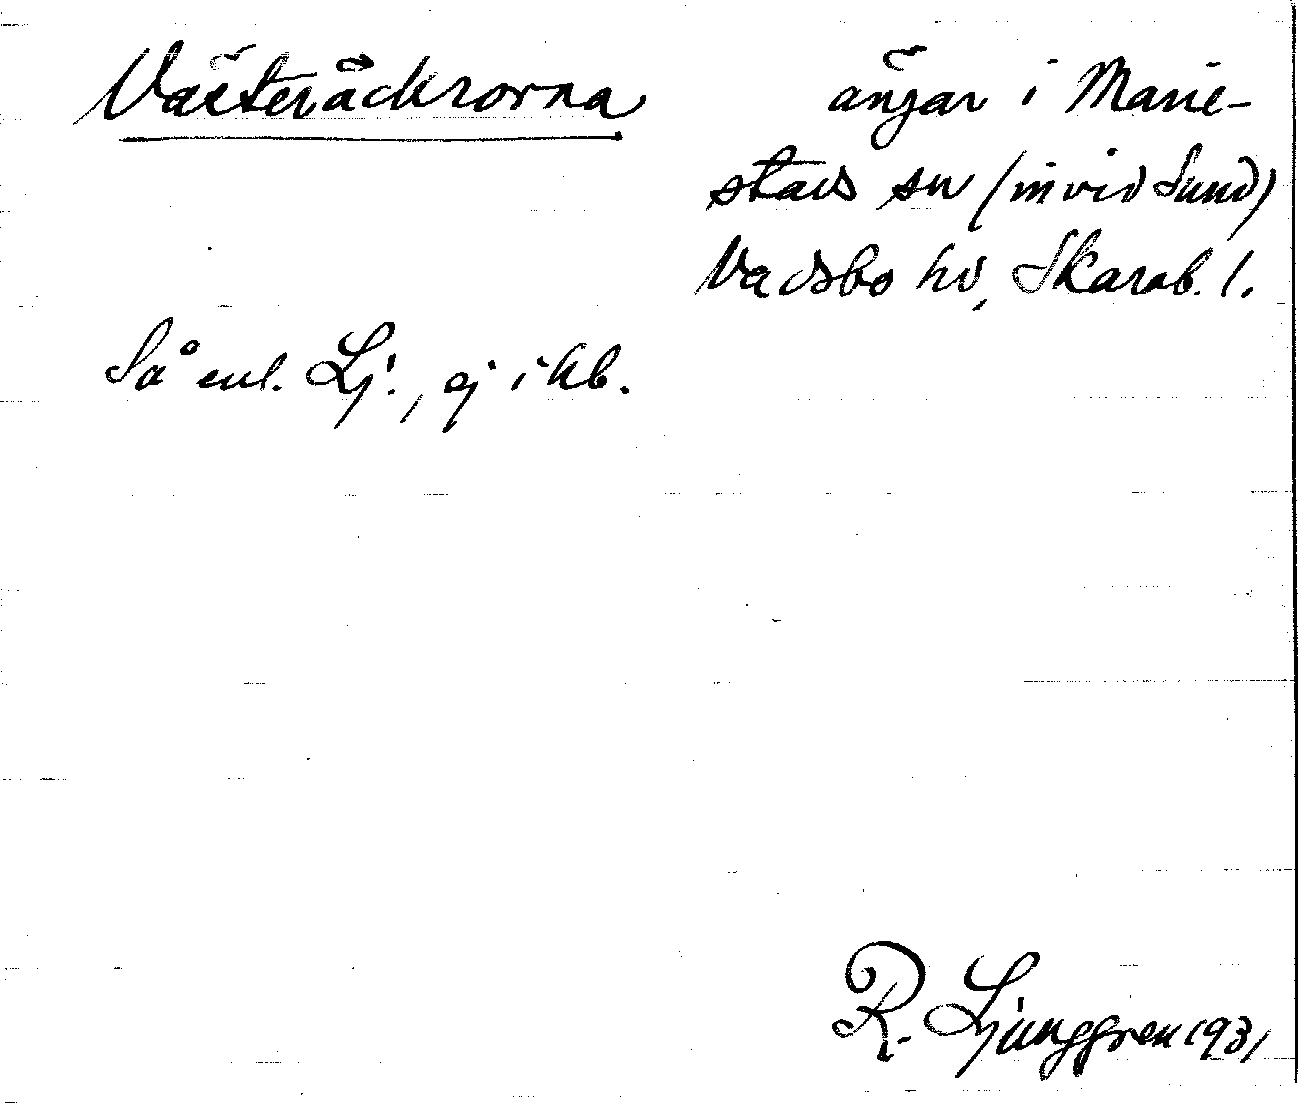 Västeråckrorna
ängar i Marie-
stads sn (invid Sund)
Vadsbo hd, Skarab. l.
Så enl. Lj., ej i kb.
R. Ljunggren 1931